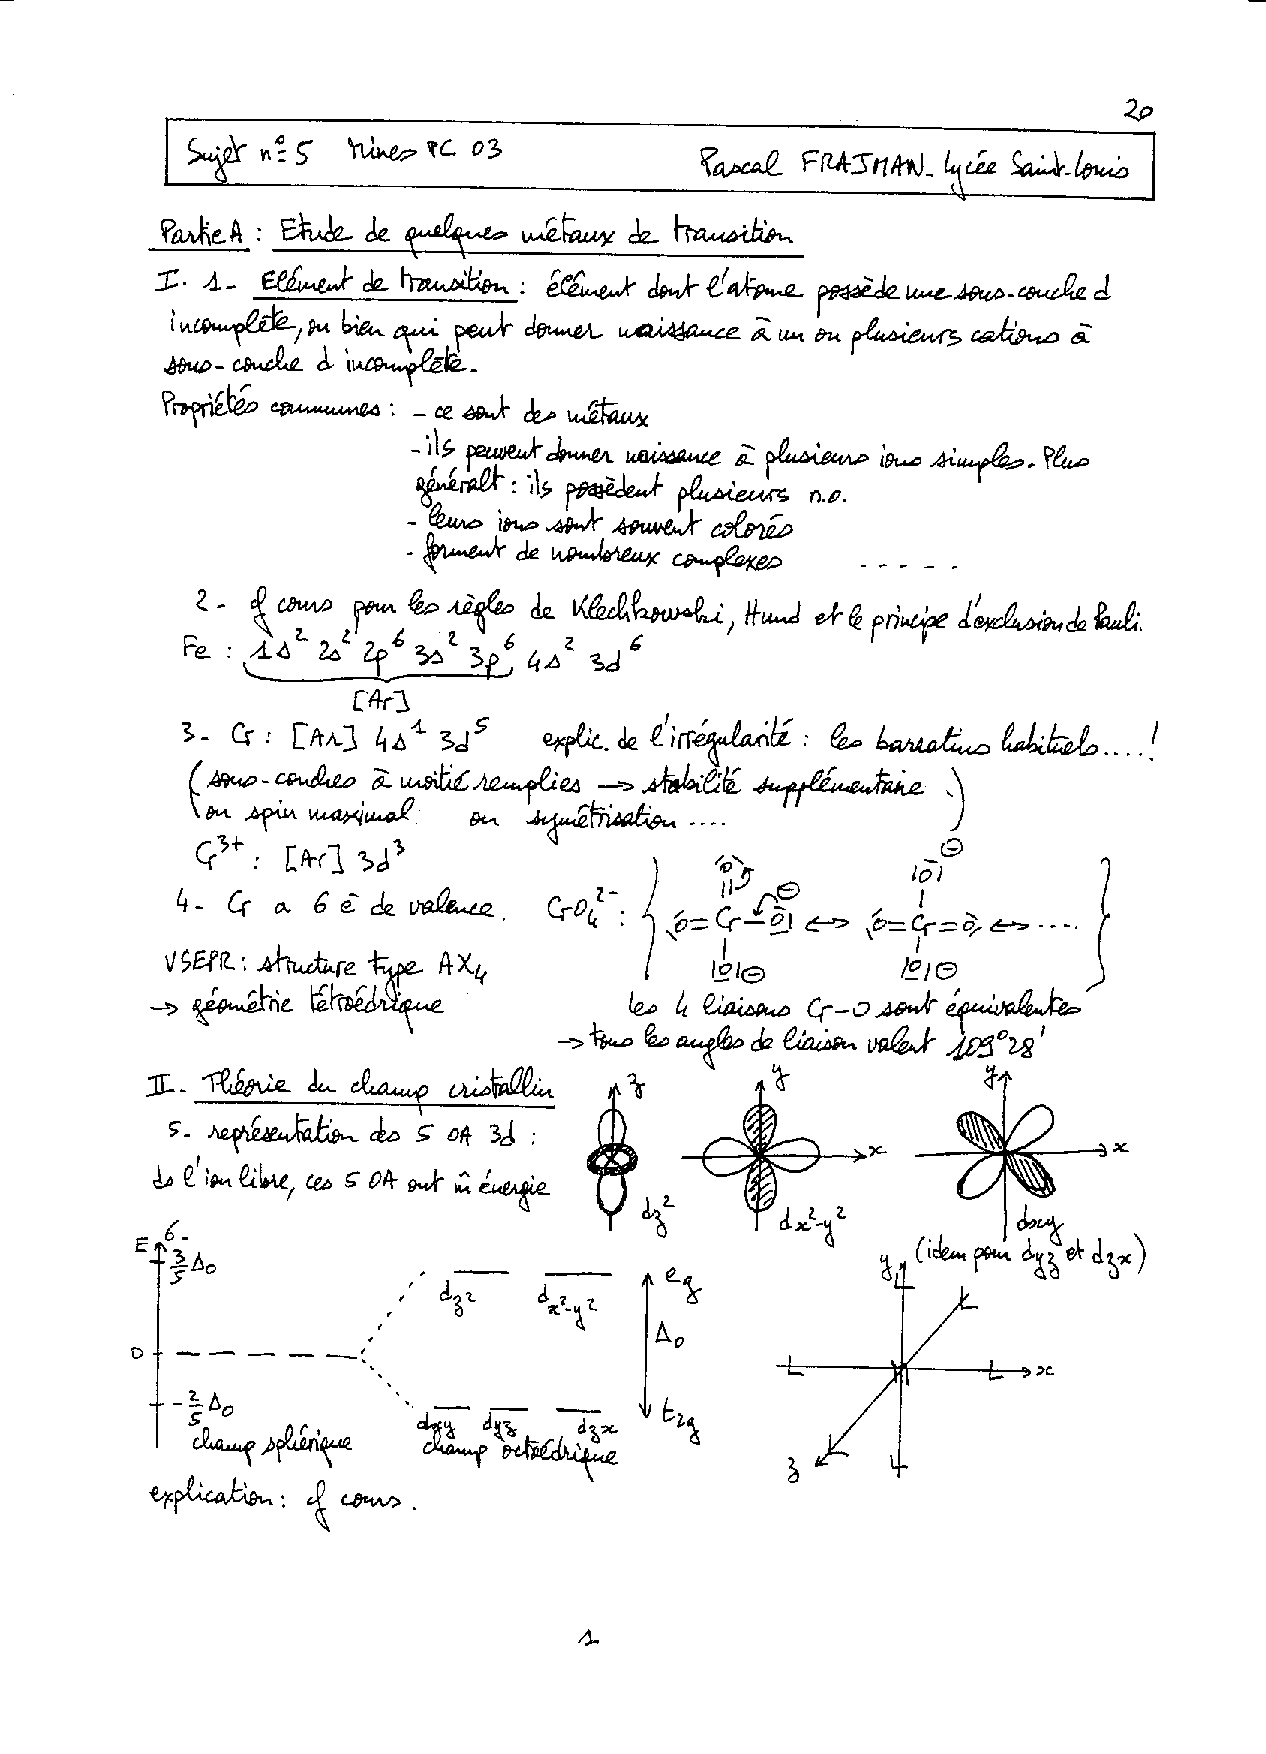 20
Sujet n° 5 Mines PC 03
Pascal FRAJMAN_ Lycée Saint-Louis
Partie A : Etude de quelques métaux de transition
I. 1- Elément de transition : élément dont l'atome possède une sous-couche d
incomplète, ou bien qui peut donner naissance à un ou plusieurs cations à
sous-couche d incomplète.
Propriétés communes : - ce sont des métaux
- ils peuvent donner naissance à plusieurs ions simples. Plus
généralt : ils possèdent plusieurs n.o.
- leurs ions sont souvent colorés
- forment de nombreux complexes - - - - -
2 - cf cours pour les règles de Klechkowski, Hund et le principe d'exclusion de Pauli.
Fe : 1s² 2s² 2p⁶ 3s² 3p⁶ 4s² 3d⁶
[Ar]
3- Cr : [Ar] 4s¹ 3d⁵ explic. de l'irrégularité : les baratins habituels....!
(sous-couches à moitié remplies → stabilité supplémentaire.)
ou spin maximal ou symétrisation ....
Cr³⁺ : [Ar] 3d³
4- Cr a 6 e⁻ de valence. CrO₄²⁻ :
VSEPR : structure type AX₄
→ géométrie tétraédrique
les 4 liaisons Cr-O sont équivalentes
→ tous les angles de liaison valent 109°28'
II- Théorie du champ cristallin
5- représentation des 5 OA 3d :
ds l'ion libre, ces 5 OA ont m̂ énergie
z
y
x
y
x
dz²
dx²-y²
dxy
(idem pour dyz et dzx)
6-
E
3/5 Δ₀
0
-2/5 Δ₀
dz² dx²-y²
eg
Δ₀
dxy dyz dzx
t2g
champ sphérique
champ octaédrique
y
L
L
L
x
L
z
L
L
explication : cf cours.
1